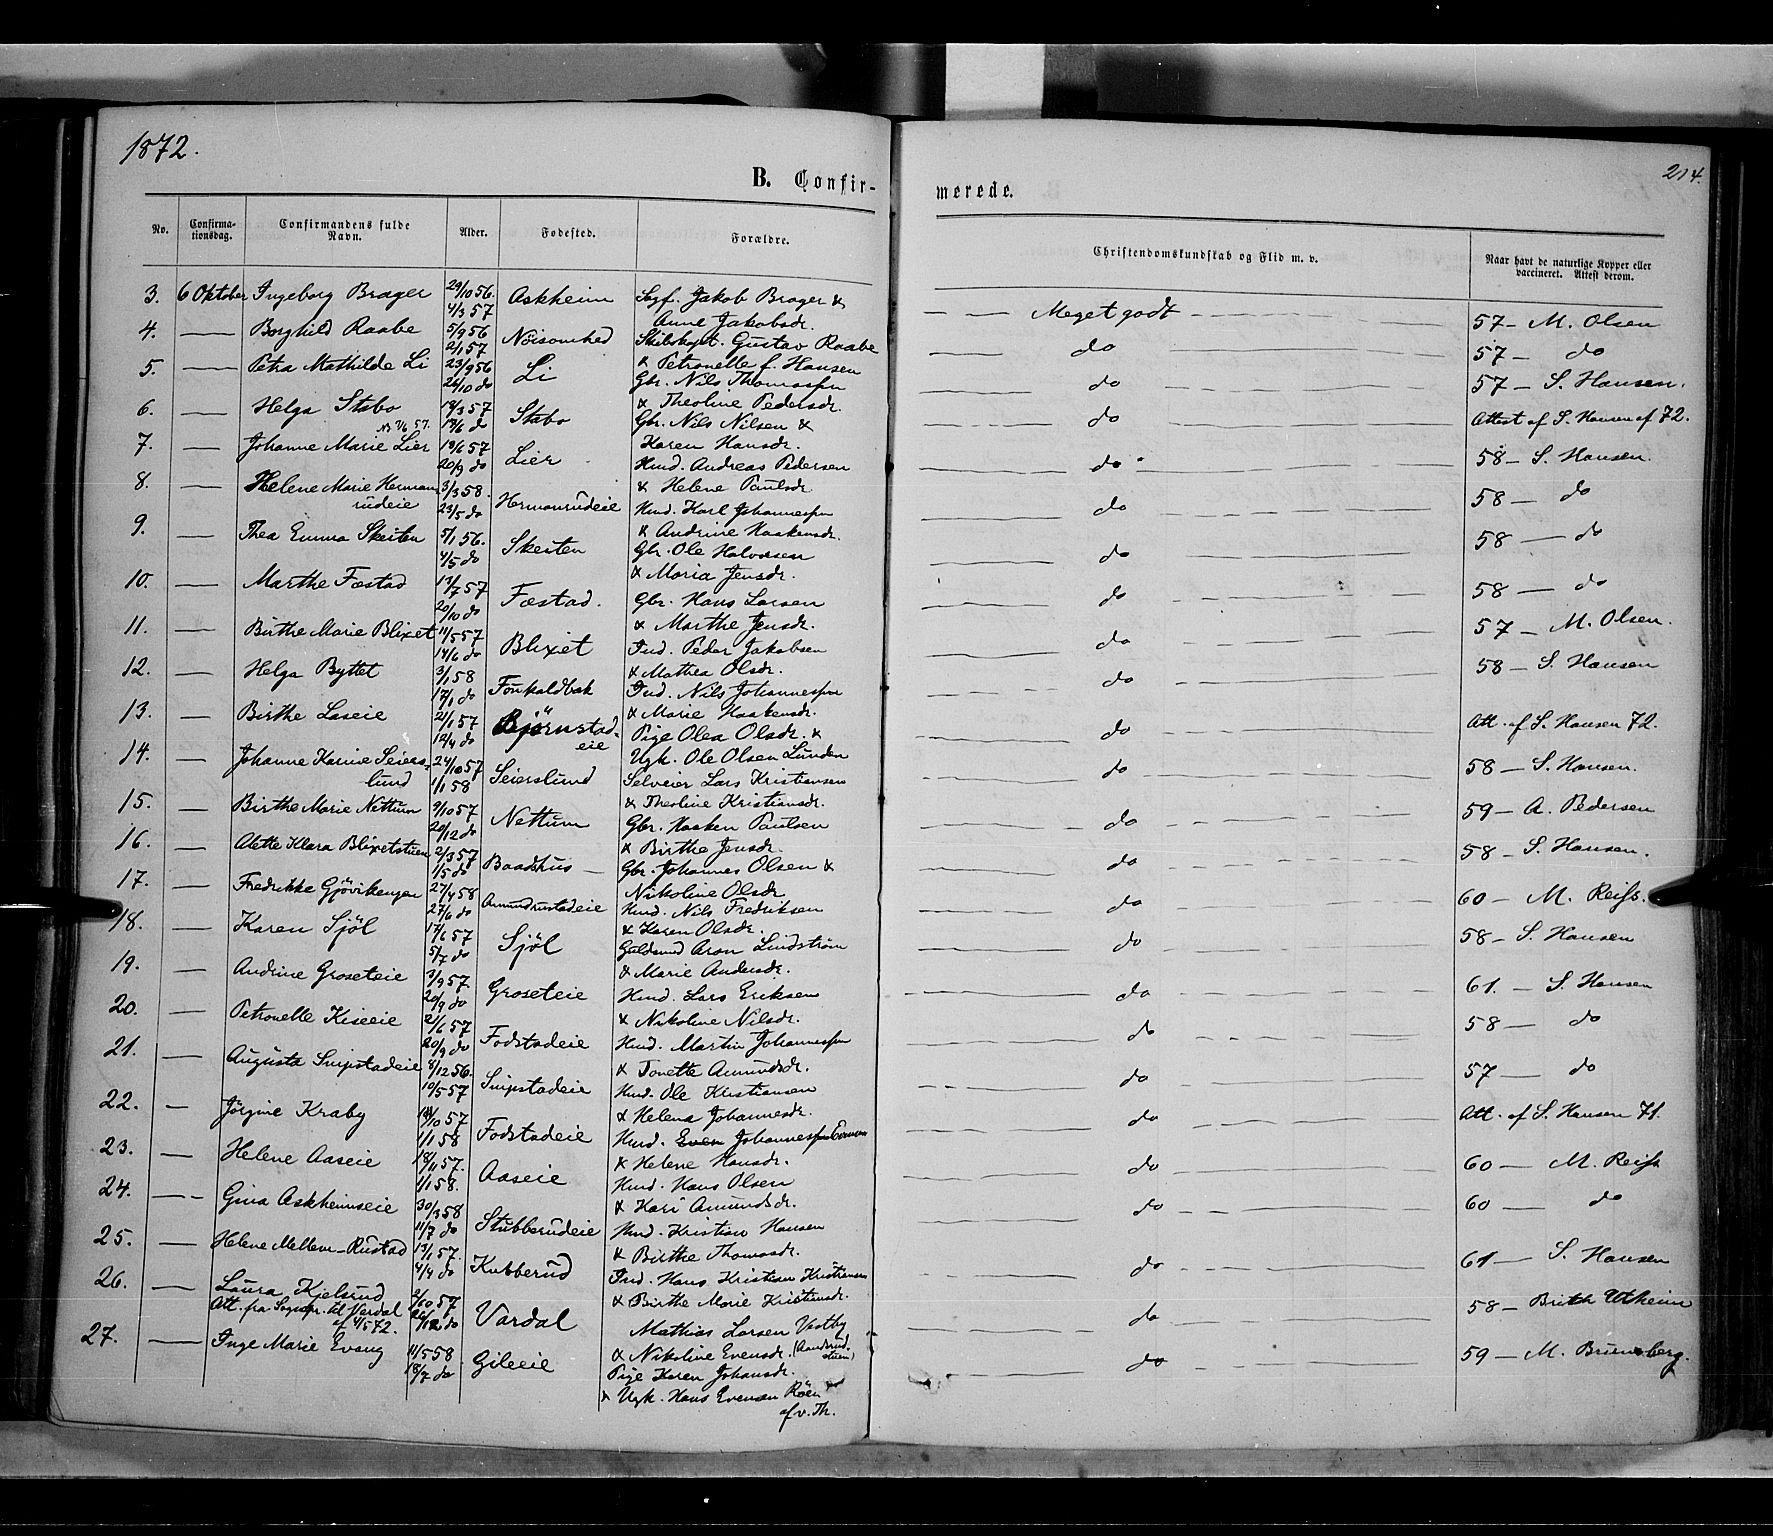 1872.
214.
B. Confir-
merede.
No.
Confirma-
tionsdag.
Confirmandens fulde
Navn.
Alder.
Fødested.
Forældre.
Christendomskundskab og Flid m. v.
Naar havt de naturlige Kopper eller
vaccineret. Attest derom.
3. 6 Oktober Ingeborg Brager 29/10 56. 4/3 57 Askheim Sgf. Jakob Brager &
Anne Jakobsdr.
Meget godt 57 - M. Olsen
4. — Borghild Raabe 5/9 56 2/1 57 Nöisomhed Skibskapt. Gustav Raabe
& Petronelle f. Hansen
do 57 - do
5. — Petra Mathilde Li 23/9 56 26/10 do Li Gbr. Nils Thomassen
& Theoline Pedersdr.
do 57 - S. Hansen.
6. — Helga Stabo 18/3 57 Stabo Gbr. Nils Nilsen &
Karen Hansdr.
do Attest af S. Hansen af 72.
7. — Johanne Marie Lier 19/6 57 20/9 do Lier Hmd. Andreas Pedersen
& Helene Paulsdr.
do 58 - S. Hansen.
8. — Helene Marie Herman
rudeie 3/3 58. 23/5 do Hermanrudeie Hmd. Karl Johannessen
& Andrine Haakensdr.
do 58 - do
9. — Thea Emma Skeiten 5/1 56. 4/5 do Skeiten Gbr. Ole Halvorsen
& Maria Jensdr.
do 58 - do
10. — Marthe Fæstad 13/7 57 20/10 do Fæstad. Gbr. Hans Larsen
& Marthe Jensdr.
do 58 - do
11. — Birthe Marie Blixet 11/5 57 14/6 do Blixet Ind. Peder Jakobsen
& Mathea Olsdr.
do 57 - M. Olsen.
12. — Helga Byttet 3/1 58 17/1 do Ind. Nils Johannessen
& Marie Haakensdr.
do 58 - S. Hansen
13. — Birthe Laseie 21/1 57 12/4 do Björnstad-
eie Pige Olea Olsdr. &
Ugk. Ole Olsen Lunden
do Att. af S. Hansen 72.
14. — Johanne Karine Seiers-
lund 24/10 57 1/1 58 Seierslund Selveier Lars Kristiansen
& Theoline Kristiansdr.
do 58 - S. Hansen.
15. — Birthe Marie Nettum 9/10 57 20/12 do Nettum Gbr. Haaken Paulsen
& Birthe Jensdr.
do 59 - A. Pedersen
16. — Alette Klara Blixetstuen 2/3 57 1/5 do Baadshus Gbr. Johannes Olsen &
Nikoline Olsdr.
do 58 - S. Hansen.
17. — Fredrikke Gjövikengen 27/4 58 27/6 do Amundrustadeie Hmd. Nils Fredriksen
& Karen Olsdr.
do 60 - M. Reiss.
18. — Karen Sjöl 17/6 57 5/7 do Sjöl Guldsmd Aron Lindström
& Marie Andersdr.
do 58 - S. Hansen
19. — Andrine Groseteie 3/9 57 20/9 do Groseteie Hmd. Lars Eriksen
& Nikoline Nilsdr.
do 61. - S. Hansen
20. — Petronelle Kiseeie 21/6 57 20/9 do Fodstadeie Hmd. Martin Johannessen
& Tonette Amundsdr.
do 58 - do
21. — Augusta Snipstadeie 8/12 56. 10/5 57 Snipstadeie Hmd. Ole Kristiansen
& Helena Johannesdr.
do 57 - do
22. — Jörgine Kraby 10/10 57 1/1 58 Fodstadeie Hmd. Even Johannessen
& Helene Hansdr.
do Att. af S. Hansen 71.
23. — Helene Aaseie 18/11 57. 1/1 58. Aaseie Hmd. Hans Olsen
& Kari Amundsdr.
do 60 - M. Reiss
24. — Gina Askheimseie 30/3 58 11/7 do Stubberudeie Hmd. Kristian Hansen
& Birthe Thomasdr.
do 60 - do
25. — Helene Mellem-Rustad 13/1 57. 4/4 do Kubberud Ind. Hans Kristian Kristiansen
& Birthe Marie Kristiansdr.
do 61 - S. Hansen
26. — Laura Kjelsrud
Att. fra Sognepr. til Vardal
af 4/5 72. 2/10 57 26/12 do Vardal Mathias Larsen Vestby
& Nikoline Evensdr.
do 58 - Brith Utheim
27. — Inge Marie Evang 11/5 58 18/7 do Gileeie Pige Karen Johansdr.
& Ugk. Hans Evensen Röen
af v. Th.
do 59 - M. Brunsberg.